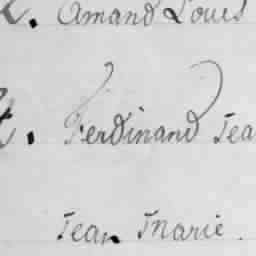 . Amand Louis
. Ferdinand Jea
Jean Marie.